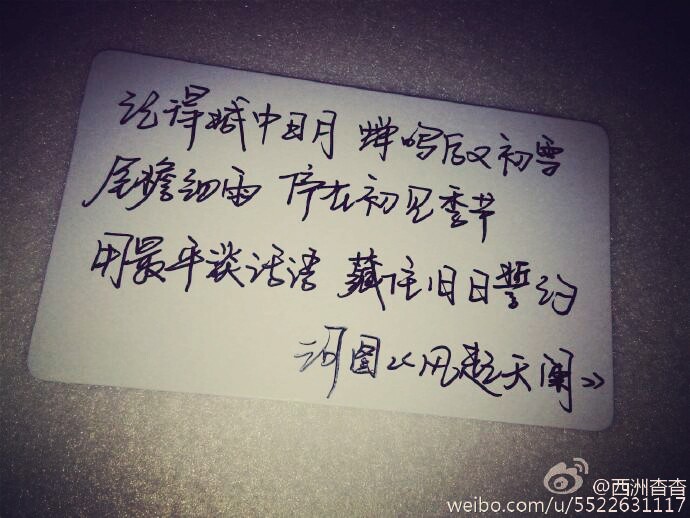 记得城中日月 蝉鸣后又初雪
屋檐细雨 停在初见季节
用最平淡话语 藏住旧日誓约
河图《风起天阑》
@西洲杳杳
weibo.com/u/5522631117